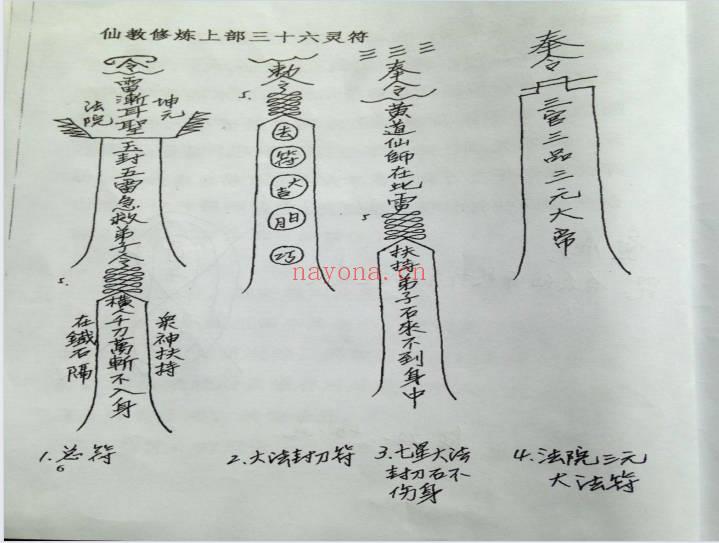 仙教修炼上部三十六灵符
令
雷漸耳聖
法院
坤元
玉封五雷急救弟子令
橫人千刀萬斬不入身
在鐵石隔
衆神扶持
1.总符
6
5.
敕令
5.
去
符
大吉
日月
巧
2.大法封刀符
三三三
奉令
黄道仙師在此雷
5
扶持弟子石來不到身中
3.七星大法
封刀石不
伤身
奉令
三官三品三元大帝
4.法院三元
大法符
nayona.cn